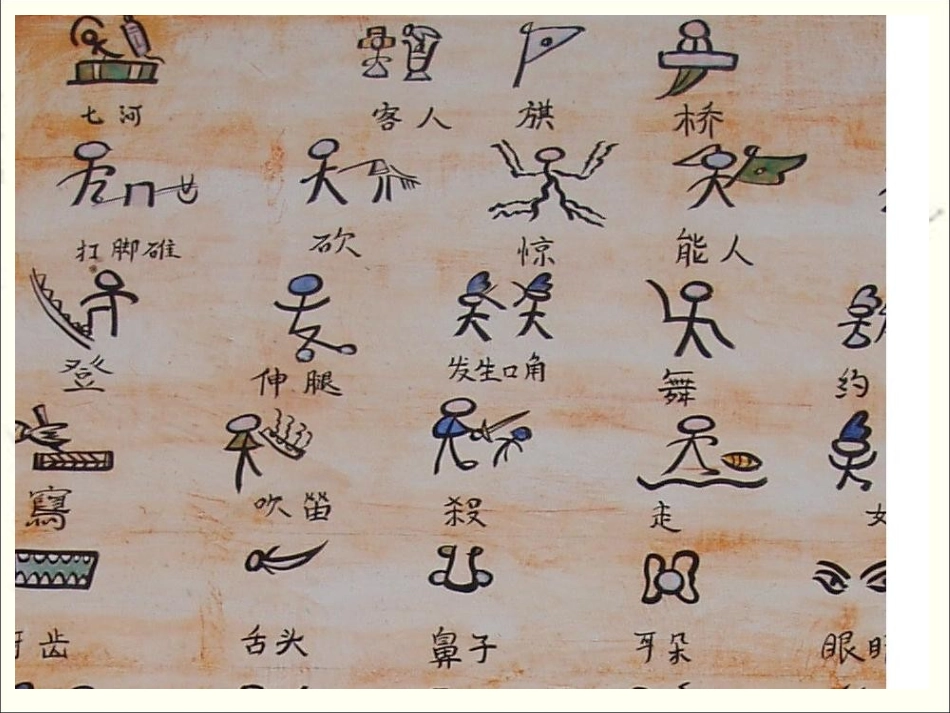 七河 客人 旗 桥
打脚碓 砍 惊 能人
登 伸腿 发生口角 舞 约
寫 吹笛 殺 走 女
牙齿 舌头 鼻子 耳朵 眼睛